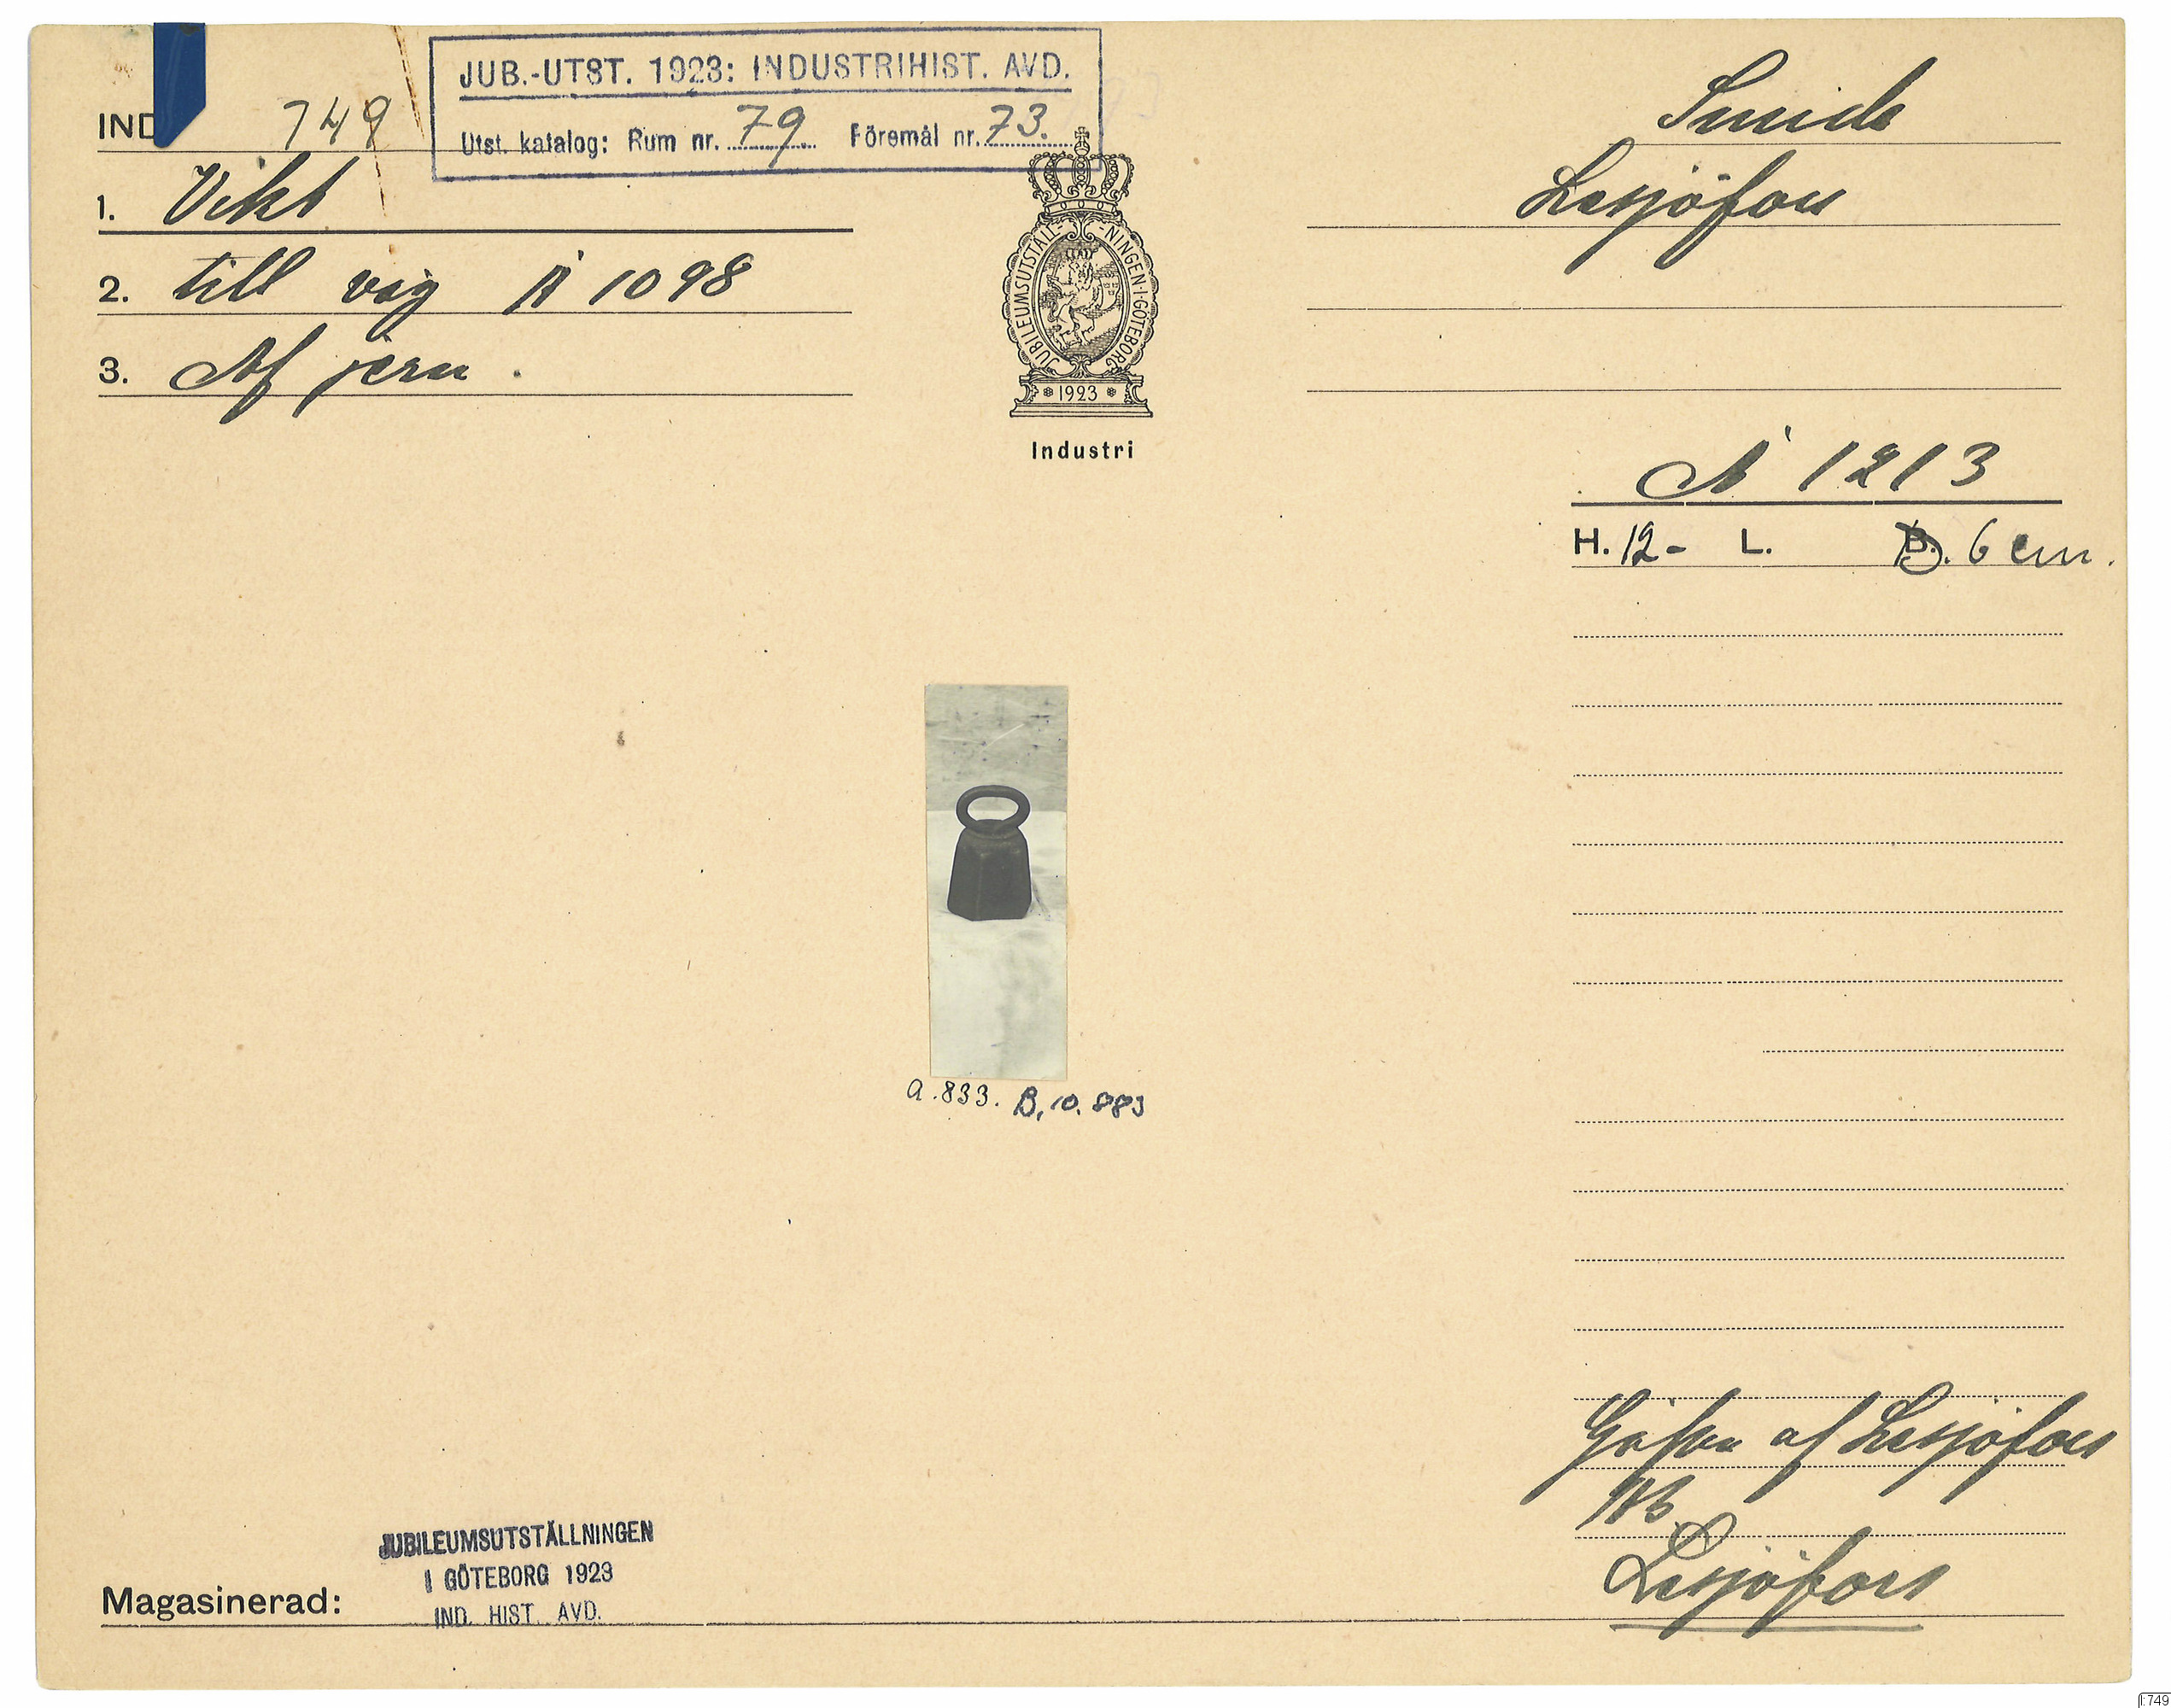 JUB.-UTST. 1923: INDUSTRIHIST. AVD.
Utst. katalog: Rum nr. 79 Föremål nr. 73.
IND 749
1. Vikt
2. till våg A 1098
3. Af jern.
JUBILEUMSUTSTÄLL-NINGEN·I·GÖTEBORG
1923
Industri
Smide
Lesjöfors
A 1213
H. 12- L. B. 6 cm.
a.833. B,10.883
Gåfva af Lesjöfors
AB.
Lesjöfors
JUBILEUMSUTSTÄLLNINGEN
I GÖTEBORG 1923
IND. HIST. AVD.
Magasinerad:
I:749